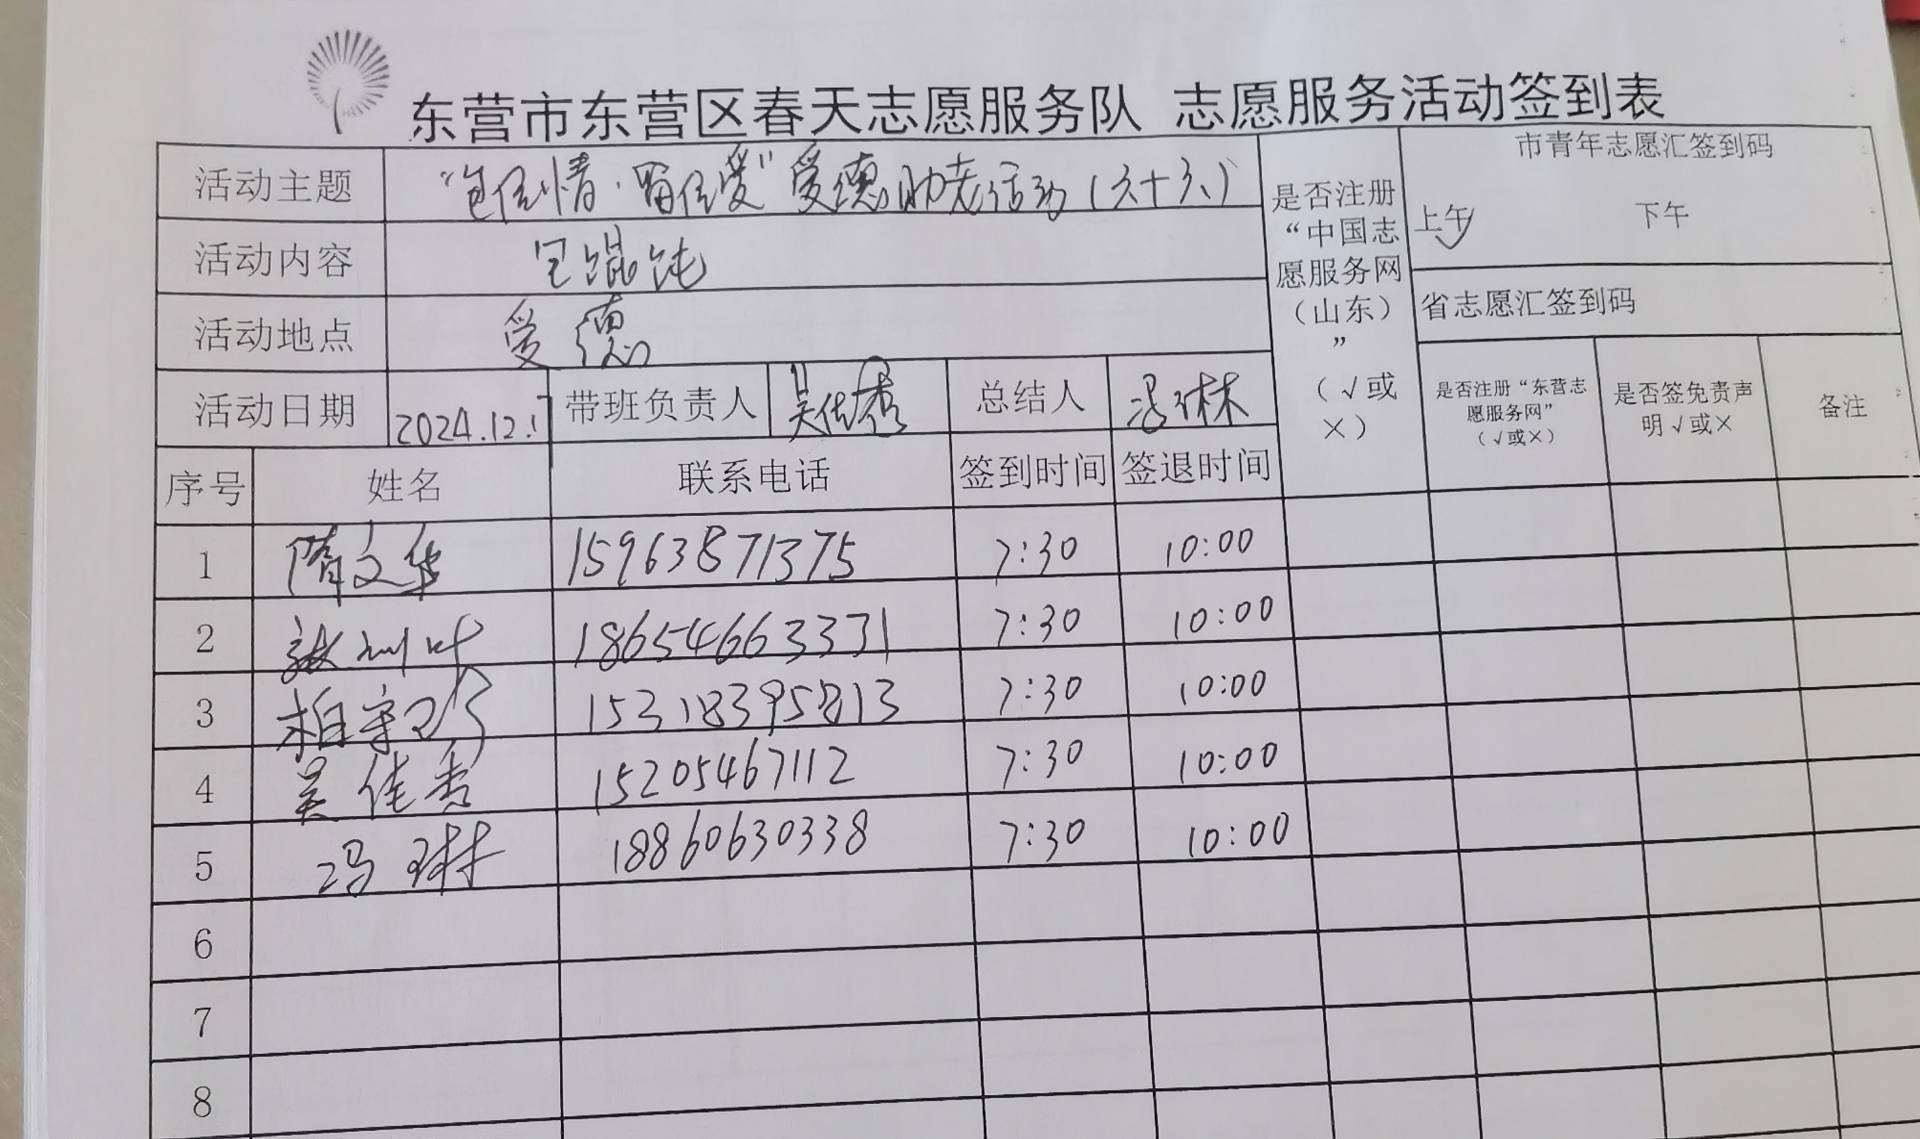 东营市东营区春天志愿服务队 志愿服务活动签到表
活动主题 “包住情·留住爱”爱德助老活动(六十六)
活动内容 包馄饨
活动地点 爱德
活动日期 2024.12.17 带班负责人 吴佳秀 总结人 冯琳
是否注册
“中国志
愿服务网
(山东)
”
(√或
×)
市青年志愿汇签到码
上午√ 下午
省志愿汇签到码
是否注册“东营志
愿服务网”
(√或×)
是否签免责声
明√或×
备注
序号 姓名 联系电话 签到时间 签退时间
1 隋文华 15963871375 7:30 10:00
2 18654663331 7:30 10:00
3 柏 15318395813 7:30 10:00
4 吴佳秀 15205467112 7:30 10:00
5 冯琳 18860630338 7:30 10:00
6
7
8